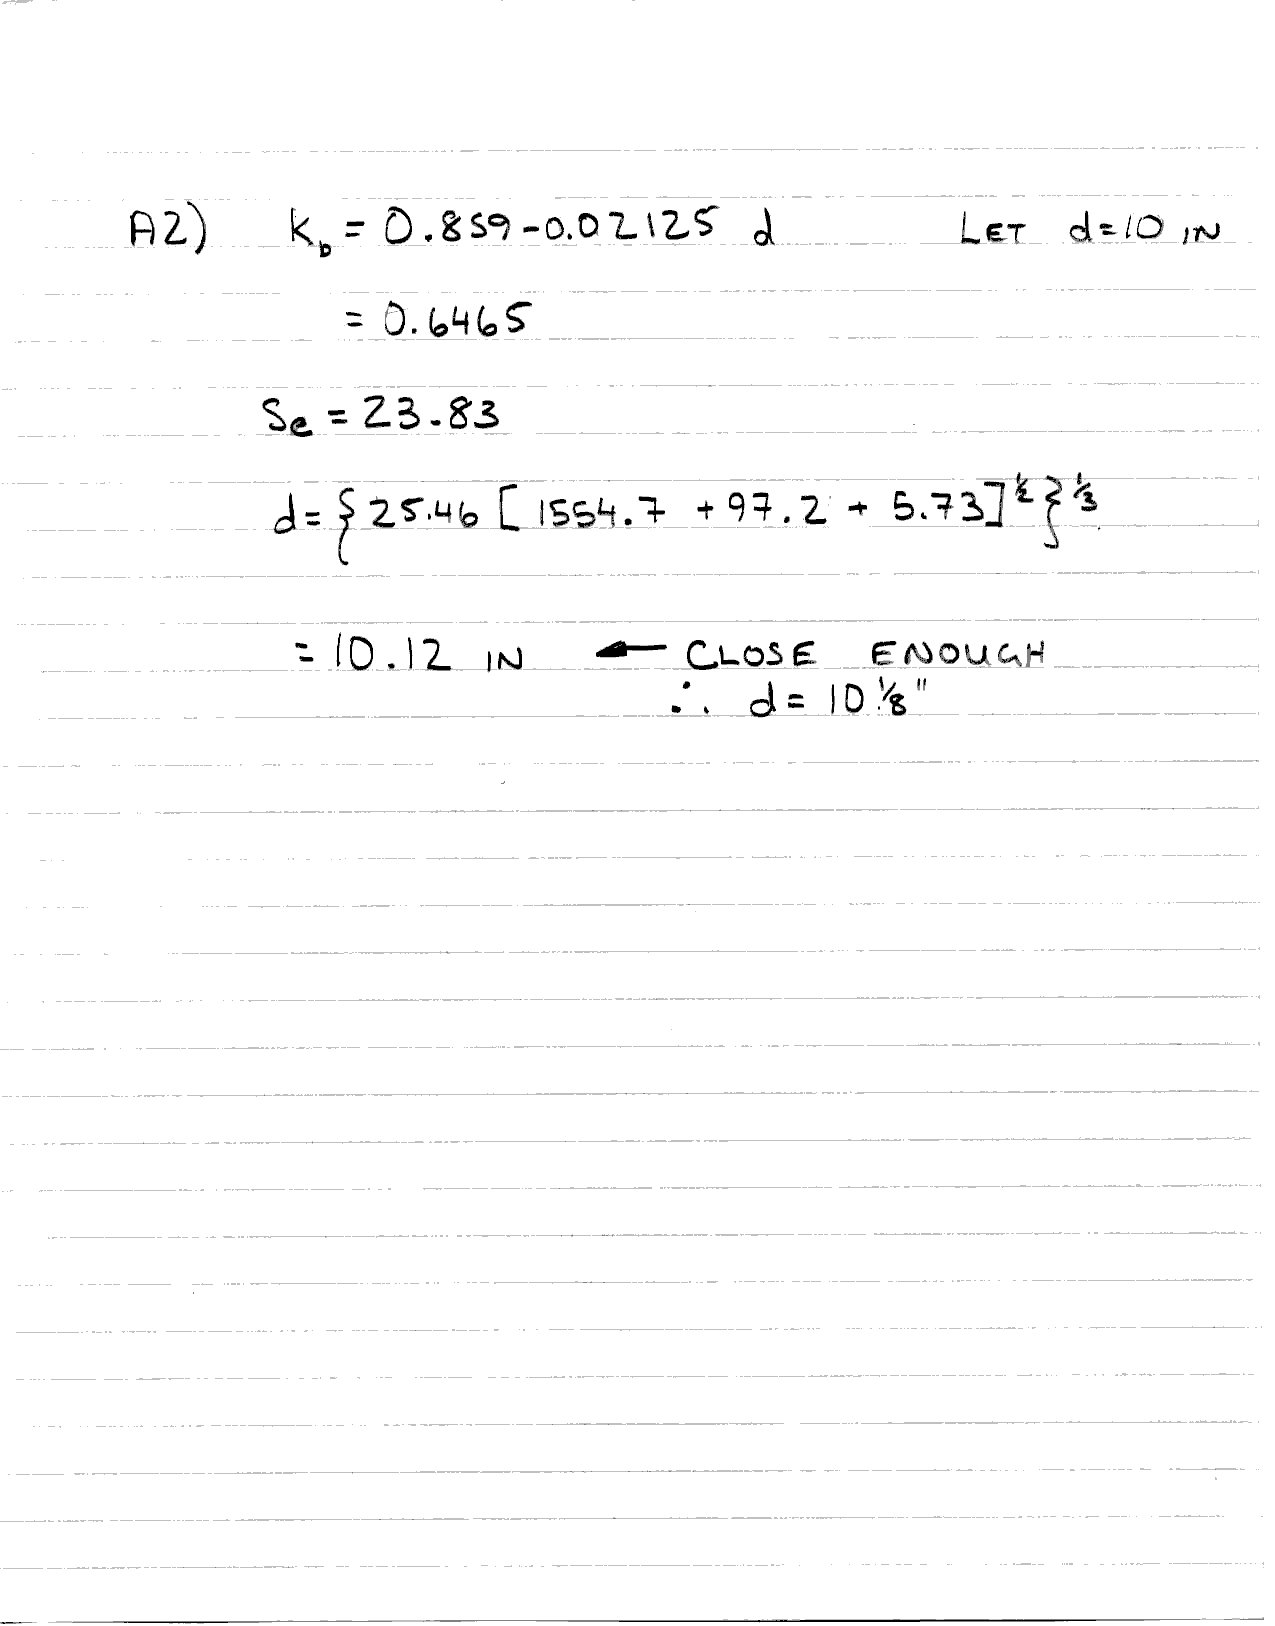 A2) k_b = 0.859-0.02125 d LET d=10 IN
= 0.6465
Se = 23.83
d= { 25.46 [ 1554.7 + 97.2 + 5.73]^½ }^⅓
= 10.12 IN ← CLOSE ENOUGH
∴ d = 10 ⅛"